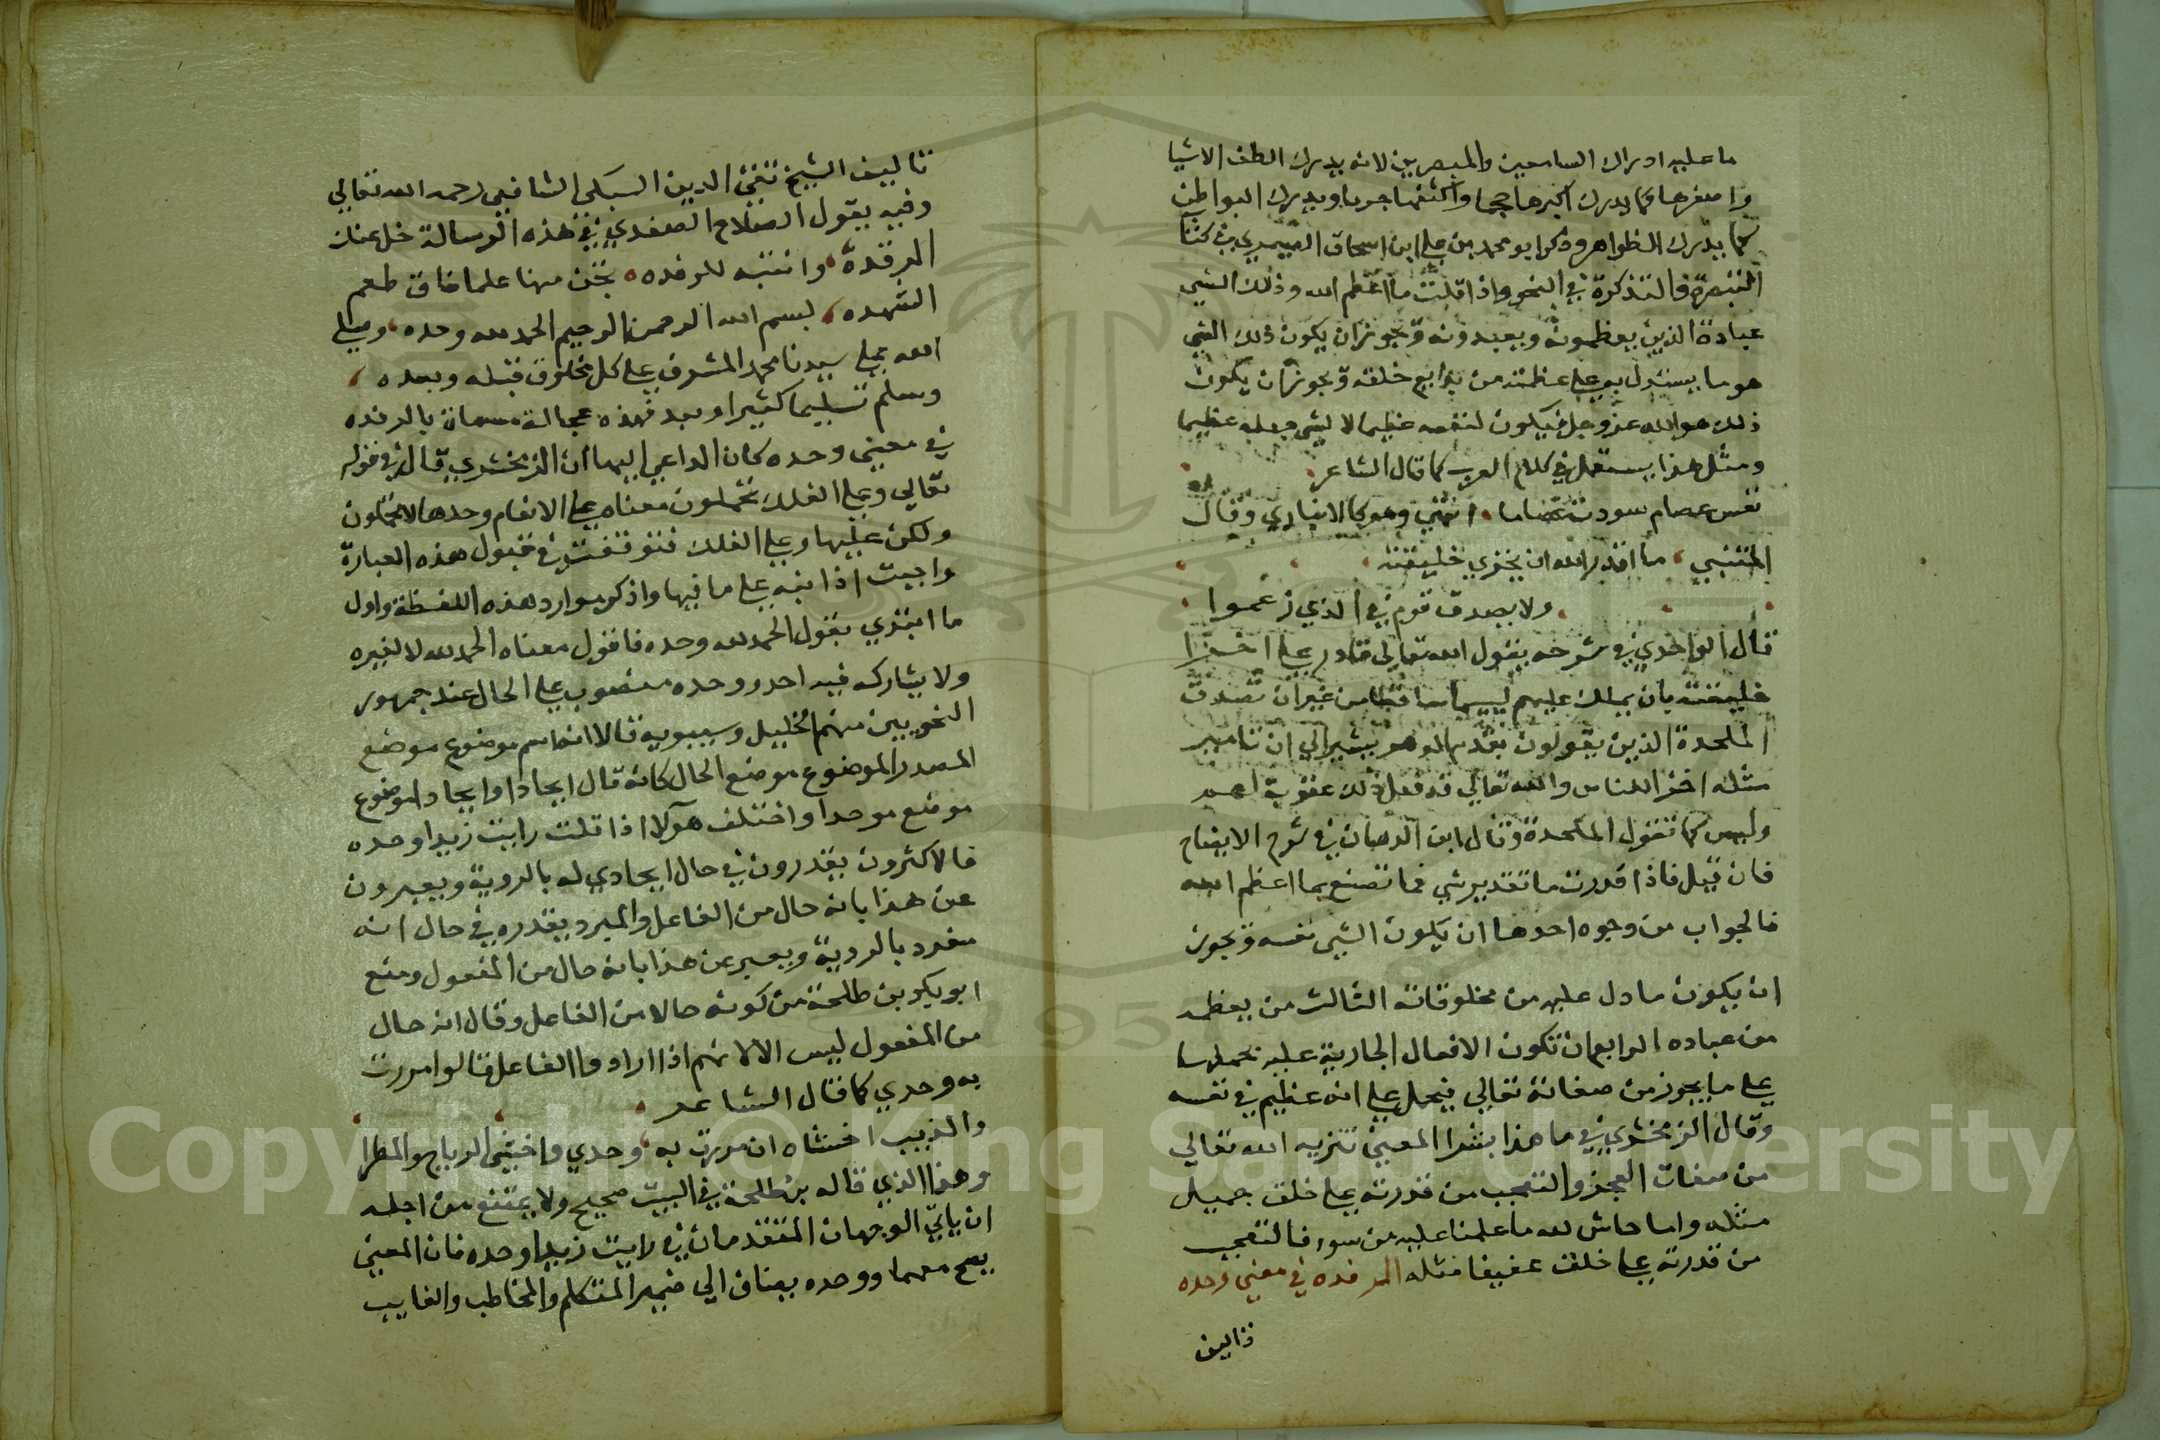 ما عليه ادراك السامعين والمبصرين لانه يدرك الطف الاشيا
واصغرها كما يدرك اكبرها حجما واكثفها جرما ويدرك البواطن
كما يدرك الظواهر وذكر ابو محمد بن علي ابن اسحاق الصيمري في كتاب
التبصرة والتذكرة في النحو واذا قلت ما اعظم الله وذلك الشي
عبادة الذين يعظمونه ويعبدونه ويجوز ان يكون ذلك الشي
هو ما يستدل به علي عظمته من بدايع خلقه ويجوز ان يكون
ذلك هو الله عز وجل فيكون لنفسه عظيما لا لشي جعله عظيما
ومثل هذا يستعمل في كلام العرب كما قال الشاعر
نفس عصام سودت عصاما انتهي وهو كالانباري وقال
المتنبي ما اقدر الله ان يخزي خليقته
ولا يصدق قوم في الذي زعموا
قال الواحدي في شرحه يقول الله تعالي قادر علي اخزا
خليقته بان يملك عليهم لييما ساقطا من غير ان تصدق
الملحدة الذين يقولون بقدم الدهر يشير الي ان تامير
مثله اخزا للناس والله تعالي قد فعل ذلك عقوبة لهم
وليس كما تقول الملحدة وقال ابن الدهان في شرح الايضاح
فان قيل فاذا قدرت ما تقدير شي فما تصنع بما اعظم الله
فالجواب من وجوه احدها ان يكون الشي نفسه ويجوز
ان يكون ما دل عليه من مخلوقاته الثالث من يعظمه
من عباده الرابع ان تكون الافعال الجارية عليه نحملها
علي ما يجوز من صفاته تعالي فيحمل علي انه عظيم في نفسه
وقال الزمخشري في ما هذا بشرا المعني تنزيه الله تعالي
من صفات العجز والتعجب من قدرته علي خلق جميل
مثله واما حاش لله ما علمنا عليه من سوء فالتعجب
من قدرته علي خلق عفيفا مثله الرفده في معني وحده
تاليف
تاليف الشيخ تقي الدين السبكي الشافعي رحمه الله تعالي
وفيه يقول الصلاح الصفدي في هذه الرسالة خل عنك
الرقدة وانتبه للرفده تجن منها علما فاق طعم
الشهده بسم الله الرحمن الرحيم الحمد لله وحده وصلي
الله علي سيدنا محمد المشرف علي كل مخلوق قبله وبعده
وسلم تسليما كثيرا وبعد فهذه عجالة مسماة بالرفده
في معني وحده كان الداعي اليها ان الزمخشري قال في قوله
تعالي وعلي الفلك تحملون معناه علي الانعام وحدها لا تحملون
ولكن عليها وعلي الفلك فتوقفت في قبول هذه العبارة
واجبت اذا نبه علي ما فيها واذكر موارد هذه اللفظة واول
ما ابتدي بقول الحمد لله وحده فاقول معناه الحمد لله لا لغيره
ولا يشاركه فيه احد ووحده منصوب علي الحال عند جمهور
النحويين منهم الخليل وسيبويه قالا انه اسم موضوع موضع
المصدر الموضوع موضع الحال كانه قال ايحادا وايحادا موضوع
موضع موحدا واختلف هولا اذا قلت رايت زيدا وحده
فالاكثرون يقدرون في حال ايحادي له بالروية ويعبرون
عن هذا بانه حال من الفاعل والمبرد يقدره في حال انه
مفرد بالروية ويعبر عن هذا بانه حال من المفعول ومنع
ابو بكر بن طلحة من كونه حالا من الفاعل وقال انه حال
من المفعول ليس الا لانهم اذا ارادوا الفاعل قالوا مررت
به وحدي كما قال الشاعر
والذيب اخشاه ان مررت به وحدي واخشي الرياح والمطرا
وهذا الذي قاله بن طلحة في البيت صحيح ولا يمتنع من اجله
ان ياتي الوجهان المتقدمان في رايت زيدا وحده فان المعني
يصح معهما ووحده يضاف الي ضمير المتكلم والمخاطب والغايب
Copyright © King Saud University